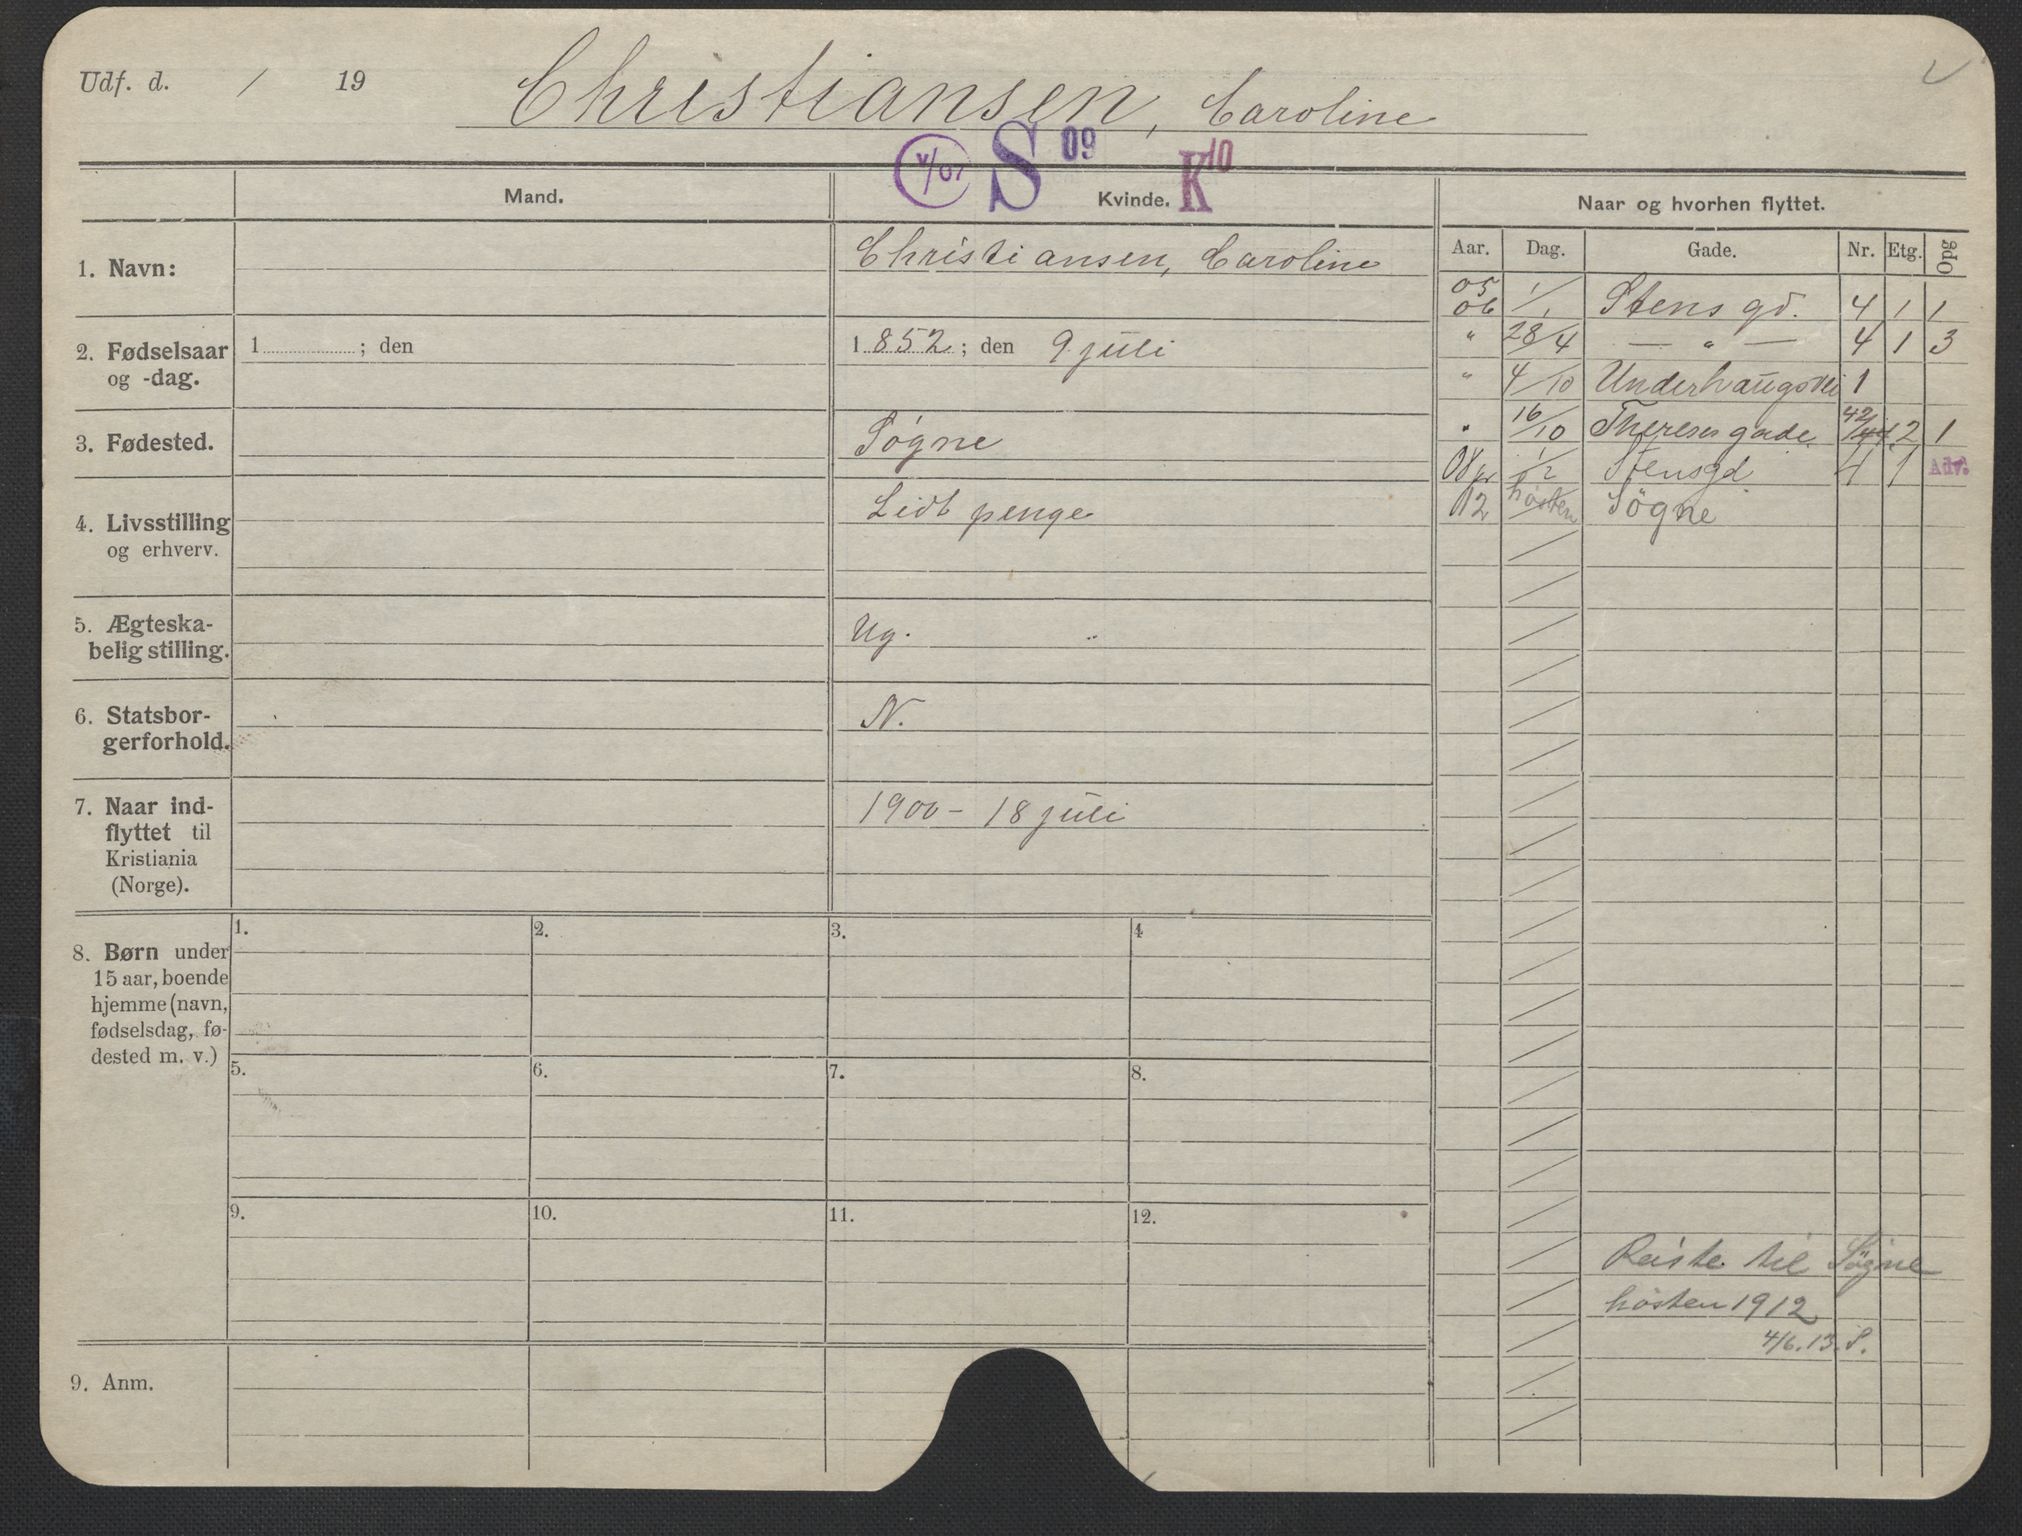 Udf. d. / 19
Christiansen, Caroline
V/07 S 09 K 10
Mand. Kvinde. Naar og hvorhen flyttet.
Aar. Dag. Gade. Nr. Etg. Opg
1. Navn:
Christiansen, Caroline
05
06 1/1 Stensgd. 4 1 1
2. Fødselsaar
og -dag.
1 ; den
1852 ; den 9 juli
" 28/4 — " — 4 1 3
" 4/10 Underhaugsvei 1
3. Fødested.
Søgne
" 16/10 Theresesgade 42/44 2 1
08 1/2 Stensgd 4 1 Adv.
4. Livsstilling
og erhverv.
Lidt penge
12 høsten Søgne
5. Ægteska-
belig stilling.
Ug. "
6. Statsbor-
gerforhold.
N.
7. Naar ind-
flyttet til
Kristiania
(Norge).
1900 - 18 juli
8. Børn under
15 aar, boende
hjemme (navn,
fødselsdag, fø-
dested m. v.)
1. 2. 3. 4
5. 6. 7. 8.
9. 10. 11. 12.
Reiste til Søgne
høsten 1912
4/6.13. S.
9. Anm.